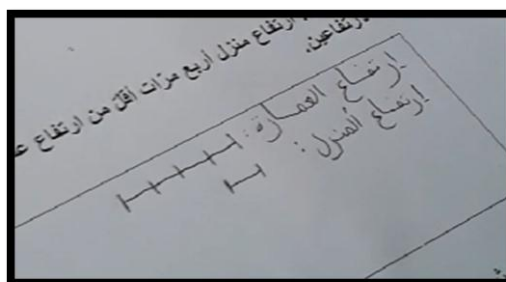 ارتفاع منزل أربع مرّات أقلّ من ارتفاع
ارتفاع العمارة :
إرتفاع المنزل :